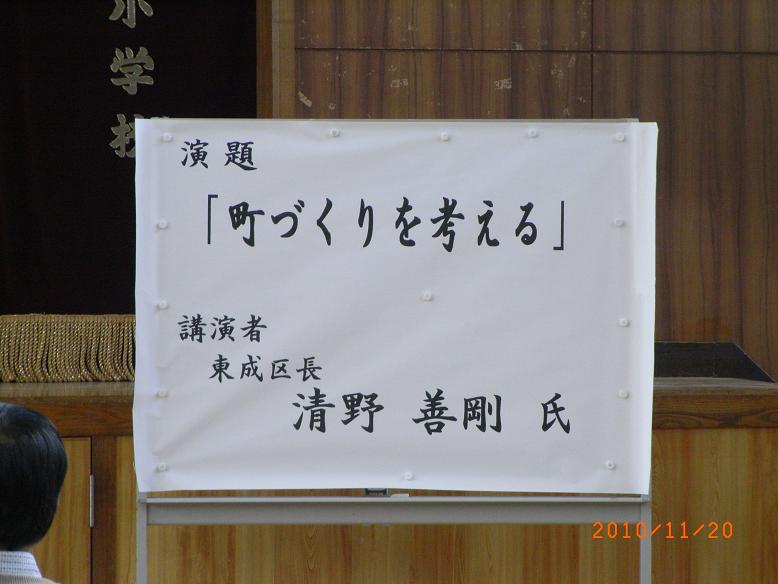 小学校
演題
「町づくりを考える」
講演者
東成区長
清野 善剛 氏
2010/11/20